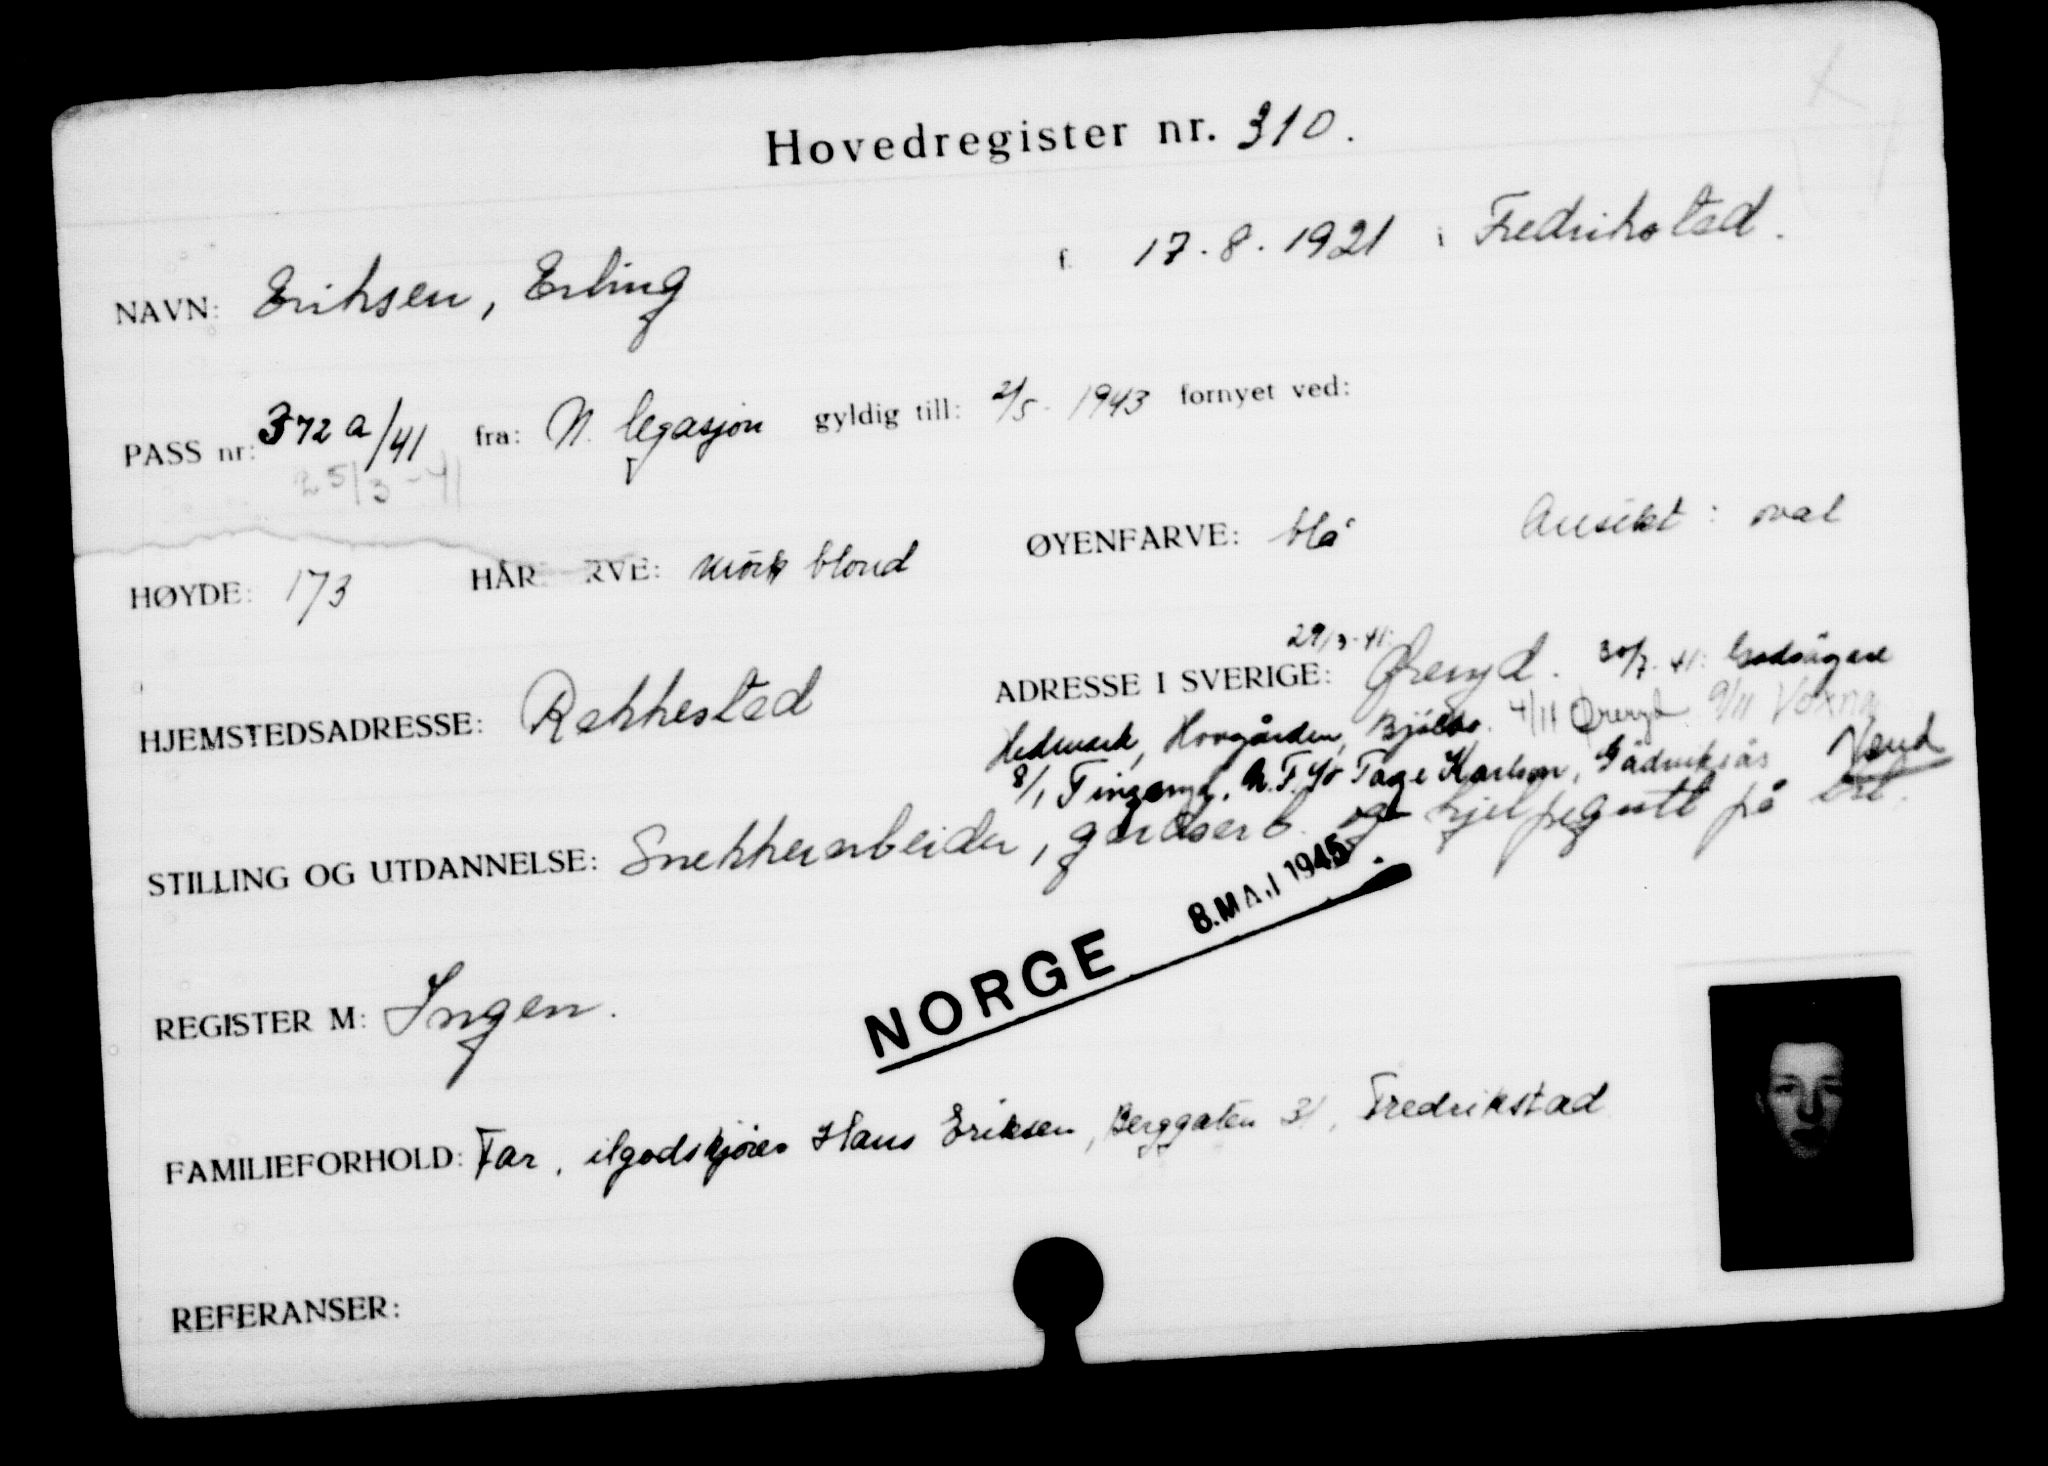 Hovedregister nr. 310.
NAVN: Eriksen, Erling f. 17.8.1921 i Fredrikstad.
PASS nr: 372a/41 fra: N. legasjon gyldig till: 2/5-1943 fornyet ved:
25/3-41
HØYDE: 173 HÅR RVE: mörk blond ØYENFARVE: blå Ansikt: oval
29/3-41:
HJEMSTEDSADRESSE: Rakkestad ADRESSE I SVERIGE: Øreryd. 30/7-41: Godsägare
Hedmark, Hovgården, Bjälbo. 4/11 Øreryd. 9/11 Voxna
8/1 Tingsryd. N.F. Tage Karlson, Gädriksås Vend
STILLING OG UTDANNELSE: Snekkerarbeider, gardsarb. og hjelpegutt på bil.
NORGE 8. MAJ 1945
REGISTER M: Ingen.
FAMILIEFORHOLD: Far, ilgodskjører Hans Eriksen, Berggaten 31, Fredrikstad
REFERANSER: